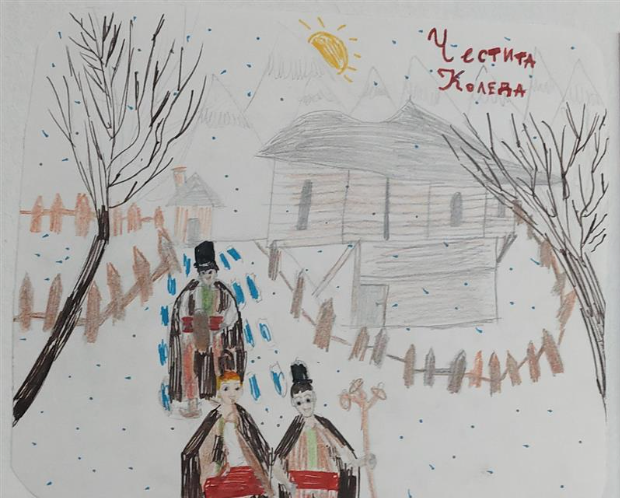 Честита
Коледа